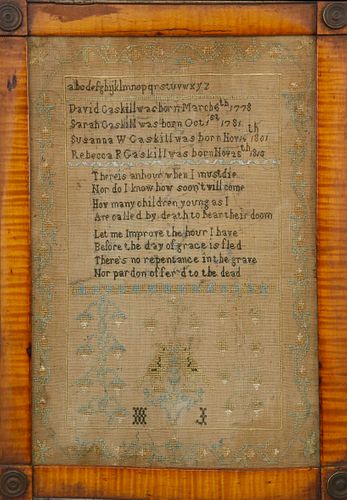 abcdefghijklmnopqrstuvwxyz
David Gaskill was born March 6th 1778
Sarah Gaskill was born Oct 1st 1781
Susanna W Gaskill was born Nov 14th 1801
Rebecca R Gaskill was born Nov 25th
There is an hour when I must die
Nor do I know how soon 'twill come
How many children young as I
Are called by death to hear their doom
Let me Improve the hour I have
Before the day of grace is fled
There's no repentance in the grave
Nor pardon offer'd to the dead